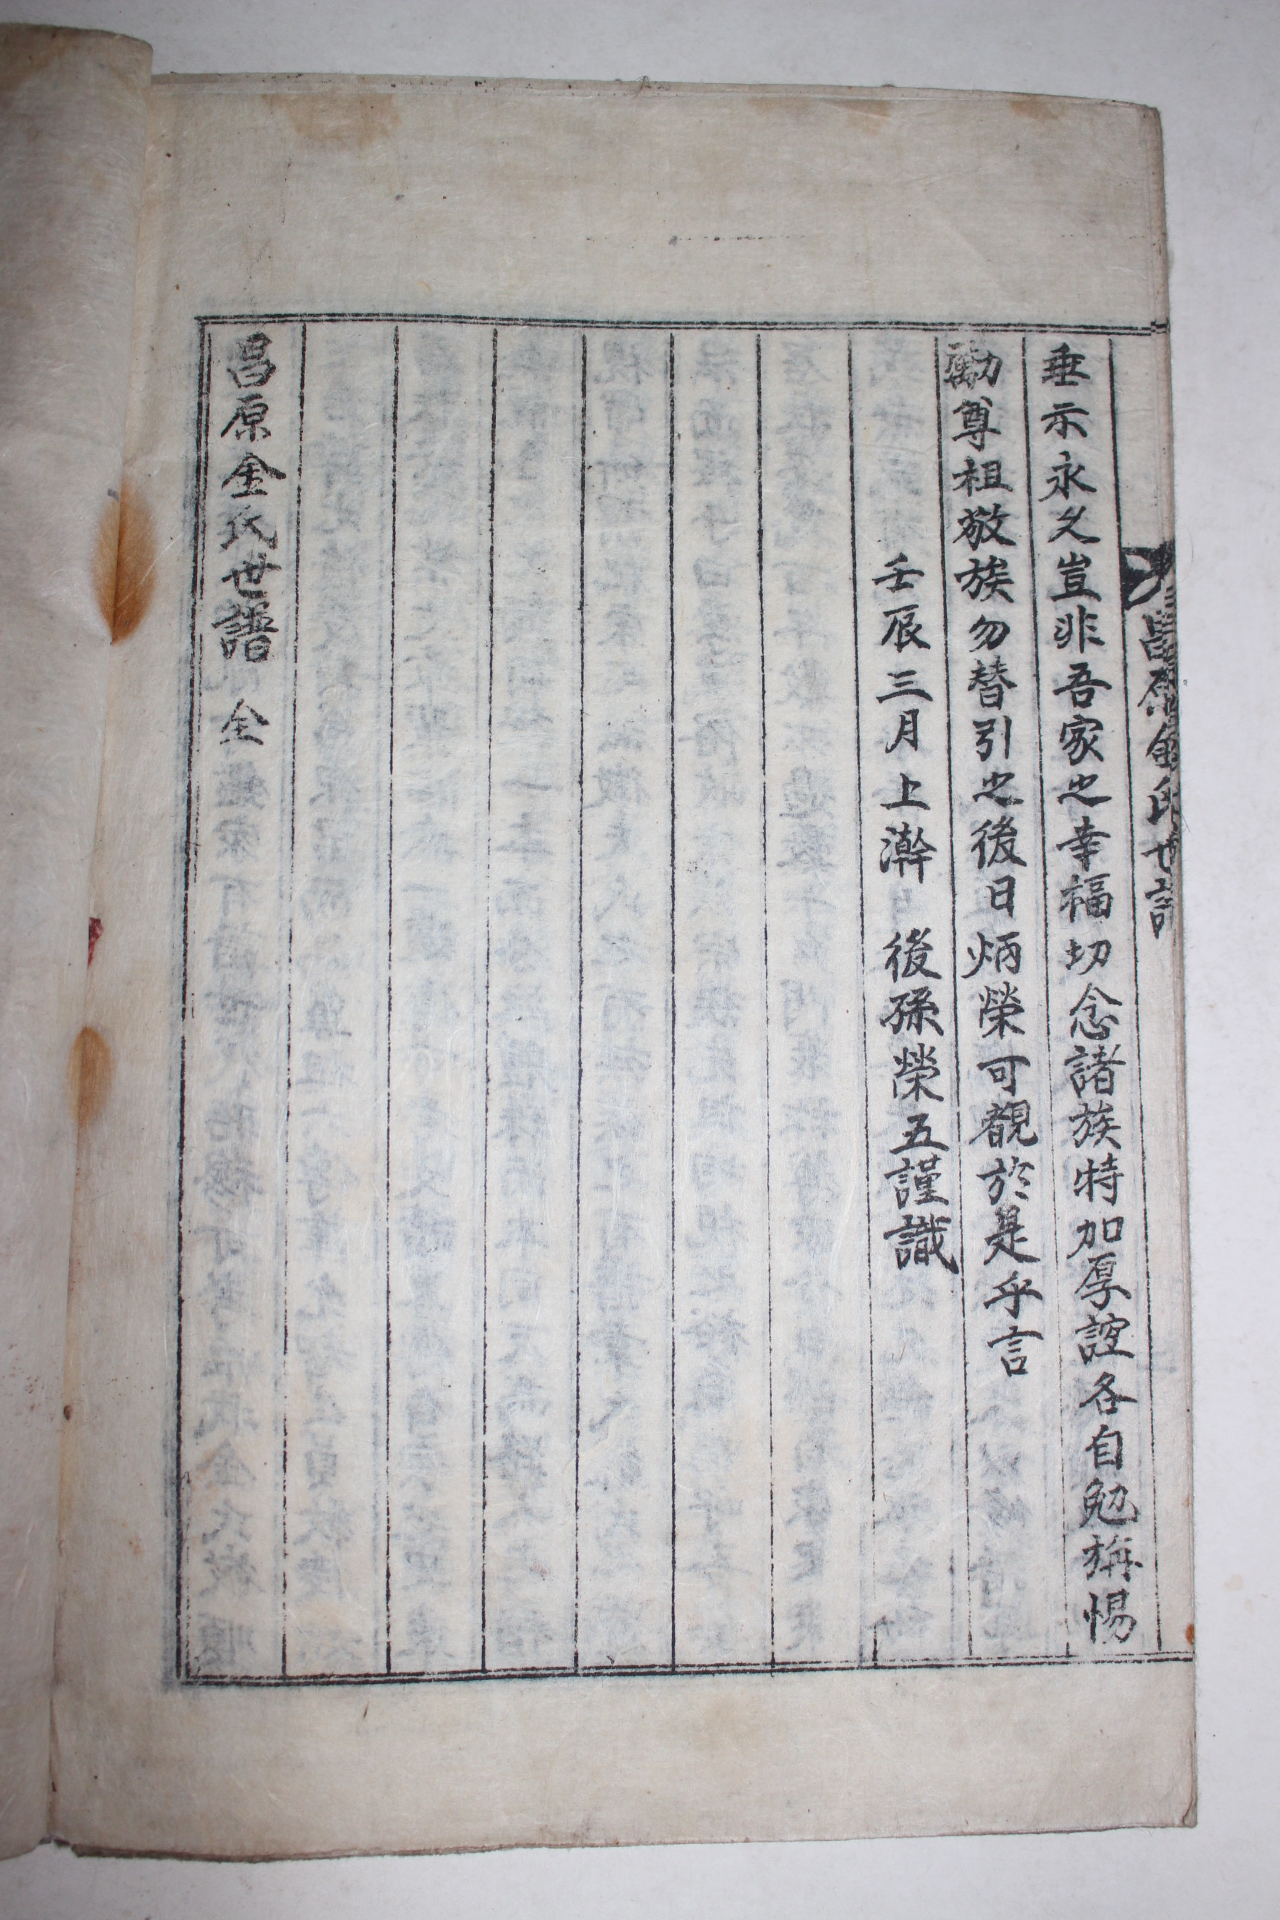 昌原金氏世譜
垂示永久豈非吾家之幸福切念諸族特加厚誼各自勉旃惕
勵尊祖敬族勿替引之後日炳榮可覩於是乎言
壬辰三月上澣 後孫榮五謹識
昌原金氏世譜 全